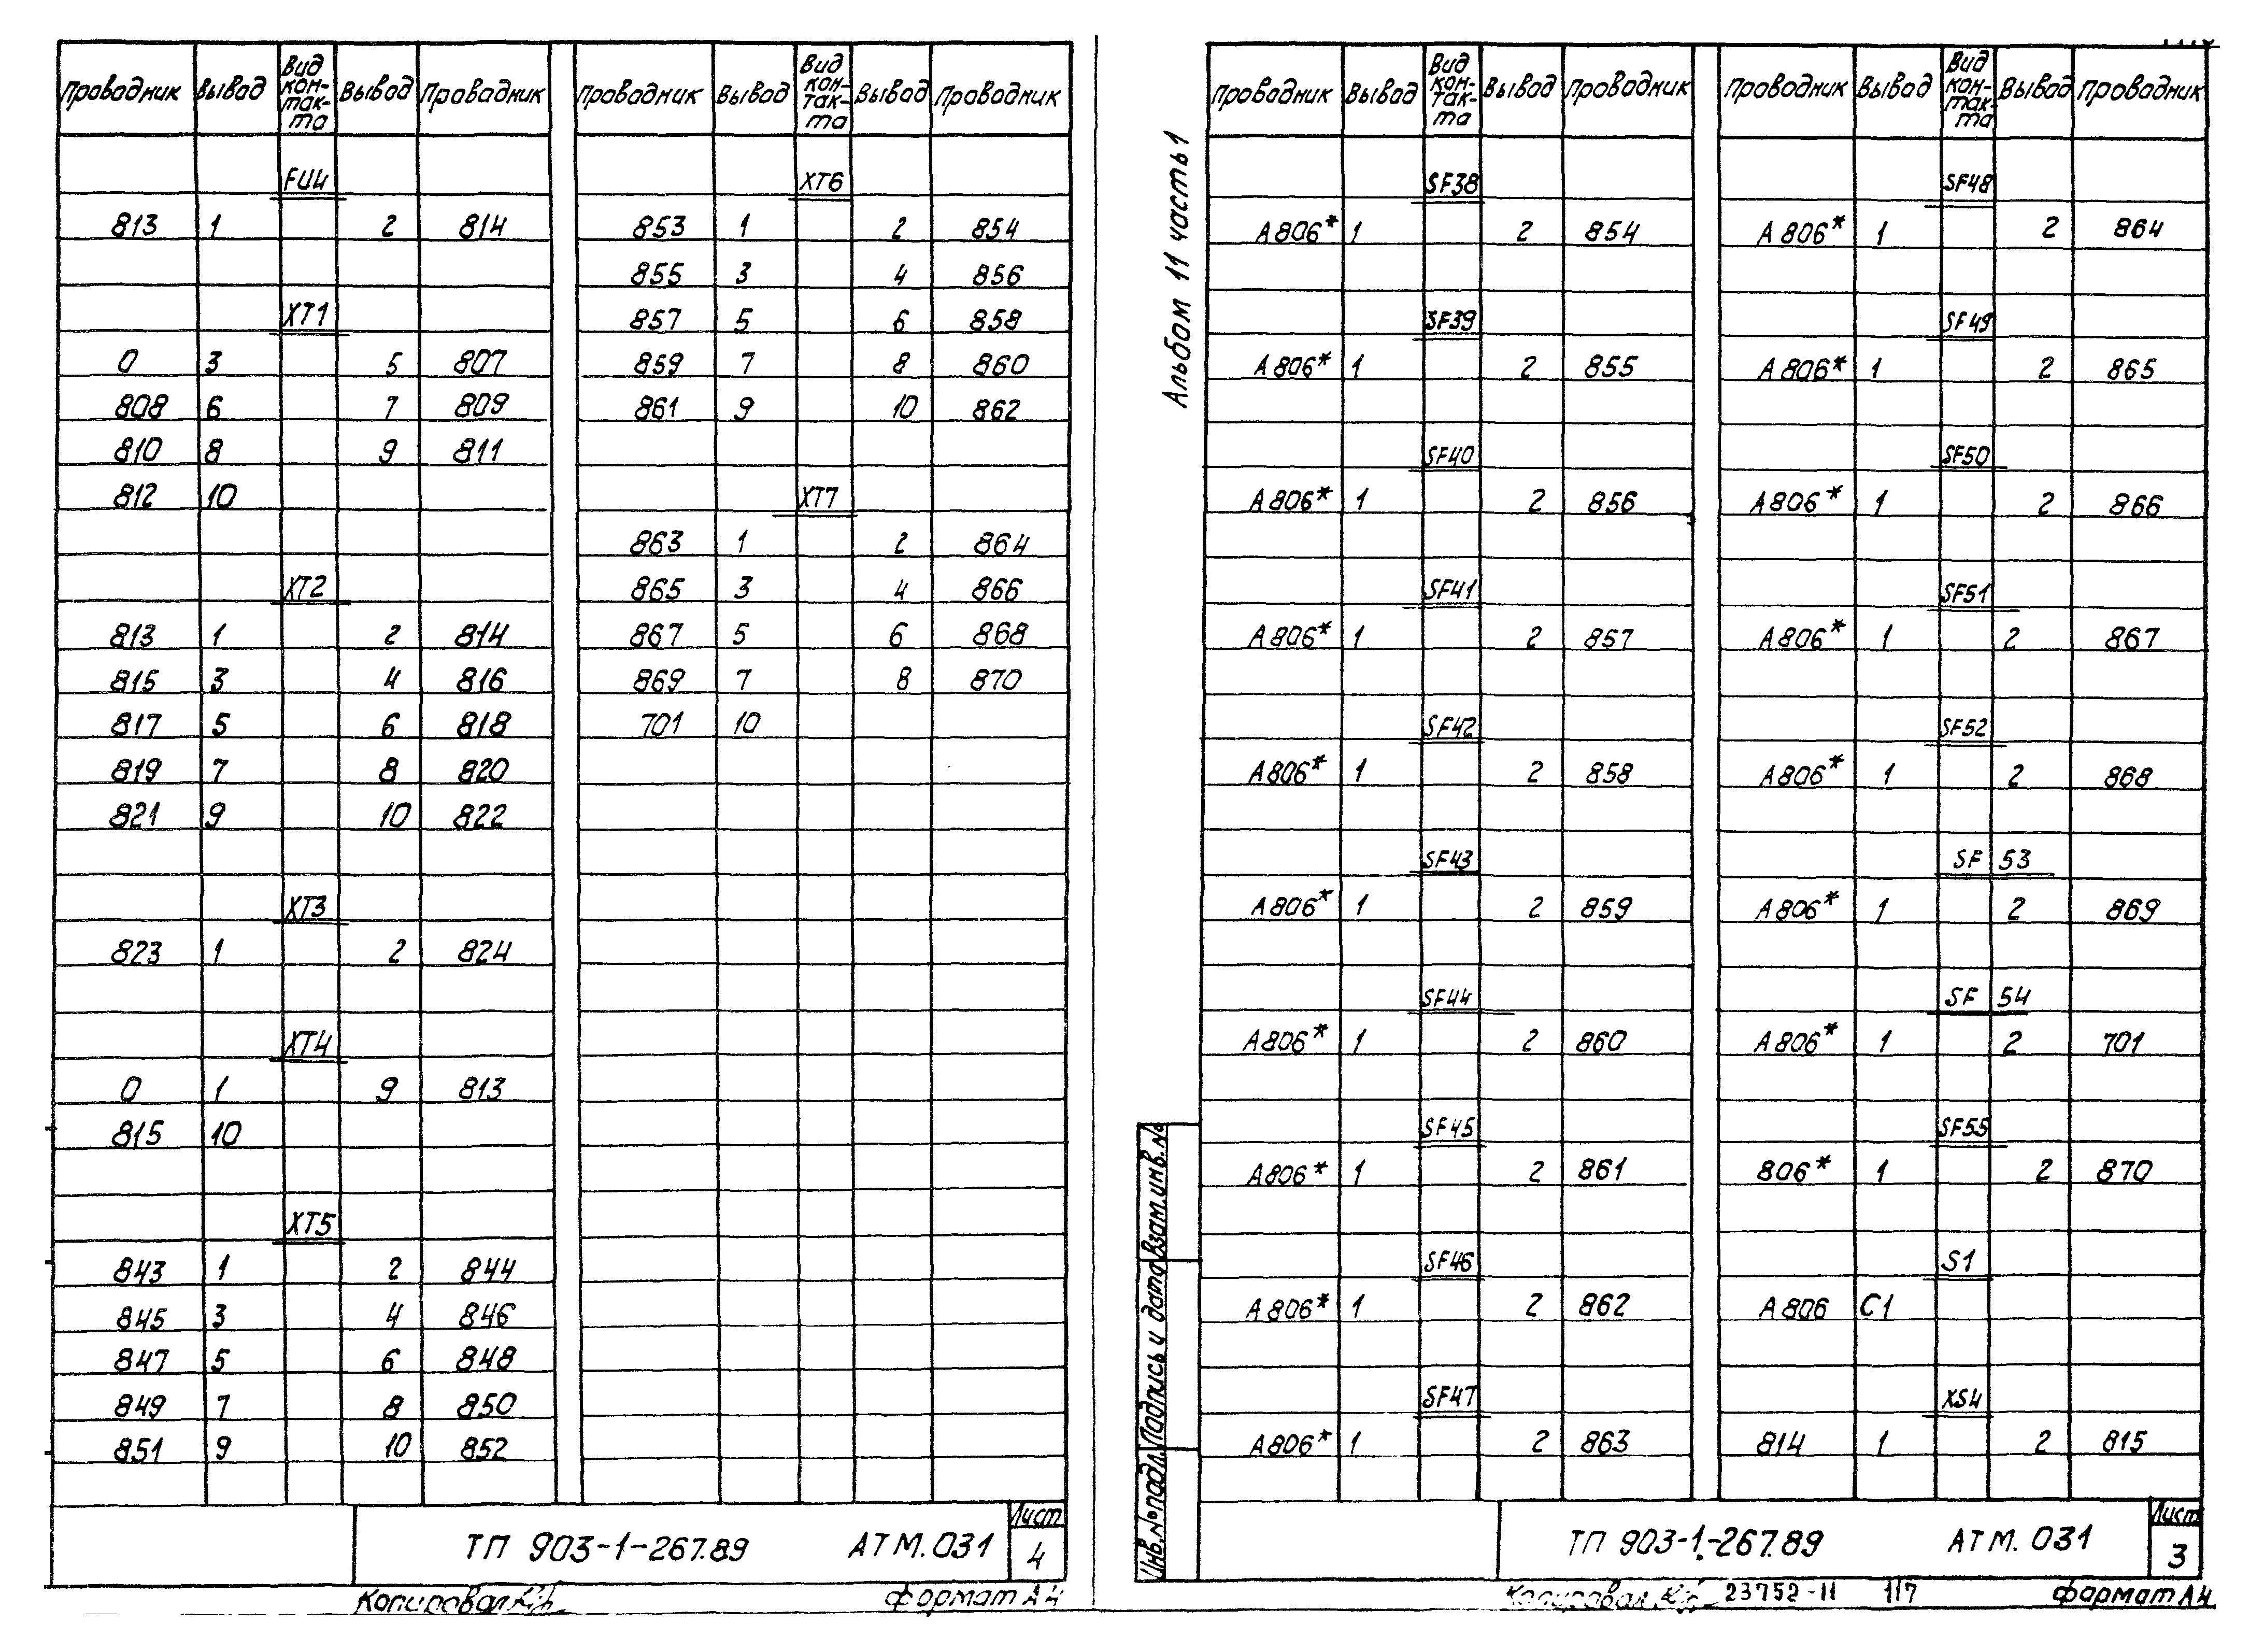 Проводник Вывод Вид кон-так-та Вывод Проводник
FU4
813 1 2 814
XT1
0 3 5 807
808 6 7 809
810 8 9 811
812 10
XT2
813 1 2 814
815 3 4 816
817 5 6 818
819 7 8 820
821 9 10 822
XT3
823 1 2 824
XT4
0 1 9 813
815 10
XT5
843 1 2 844
845 3 4 846
847 5 6 848
849 7 8 850
851 9 10 852
Проводник Вывод Вид кон-так-та Вывод Проводник
XT6
853 1 2 854
855 3 4 856
857 5 6 858
859 7 8 860
861 9 10 862
XT7
863 1 2 864
865 3 4 866
867 5 6 868
869 7 8 870
701 10
ТП 903-1-267.89 АТМ.031
Лист
4
Копировал
Формат А4
Альбом 11 часть 1
Проводник Вывод Вид кон-так-та Вывод Проводник
SF38
А806* 1 2 854
SF39
А806* 1 2 855
SF40
А806* 1 2 856
SF41
А806* 1 2 857
SF42
А806* 1 2 858
SF43
А806* 1 2 859
SF44
А806* 1 2 860
SF45
А806* 1 2 861
SF46
А806* 1 2 862
SF47
А806* 1 2 863
Проводник Вывод Вид кон-так-та Вывод Проводник
SF48
А806* 1 2 864
SF49
А806* 1 2 865
SF50
А806* 1 2 866
SF51
А806* 1 2 867
SF52
А806* 1 2 868
SF 53
А806* 1 2 869
SF 54
А806* 1 2 701
SF55
806* 1 2 870
S1
А806 С1
XS4
814 1 2 815
Взам.инв.№
Подпись и дата
Инв.№подл.
ТП 903-1-267.89 АТМ.031
Лист
3
Копировал 23752-11 117
Формат А4